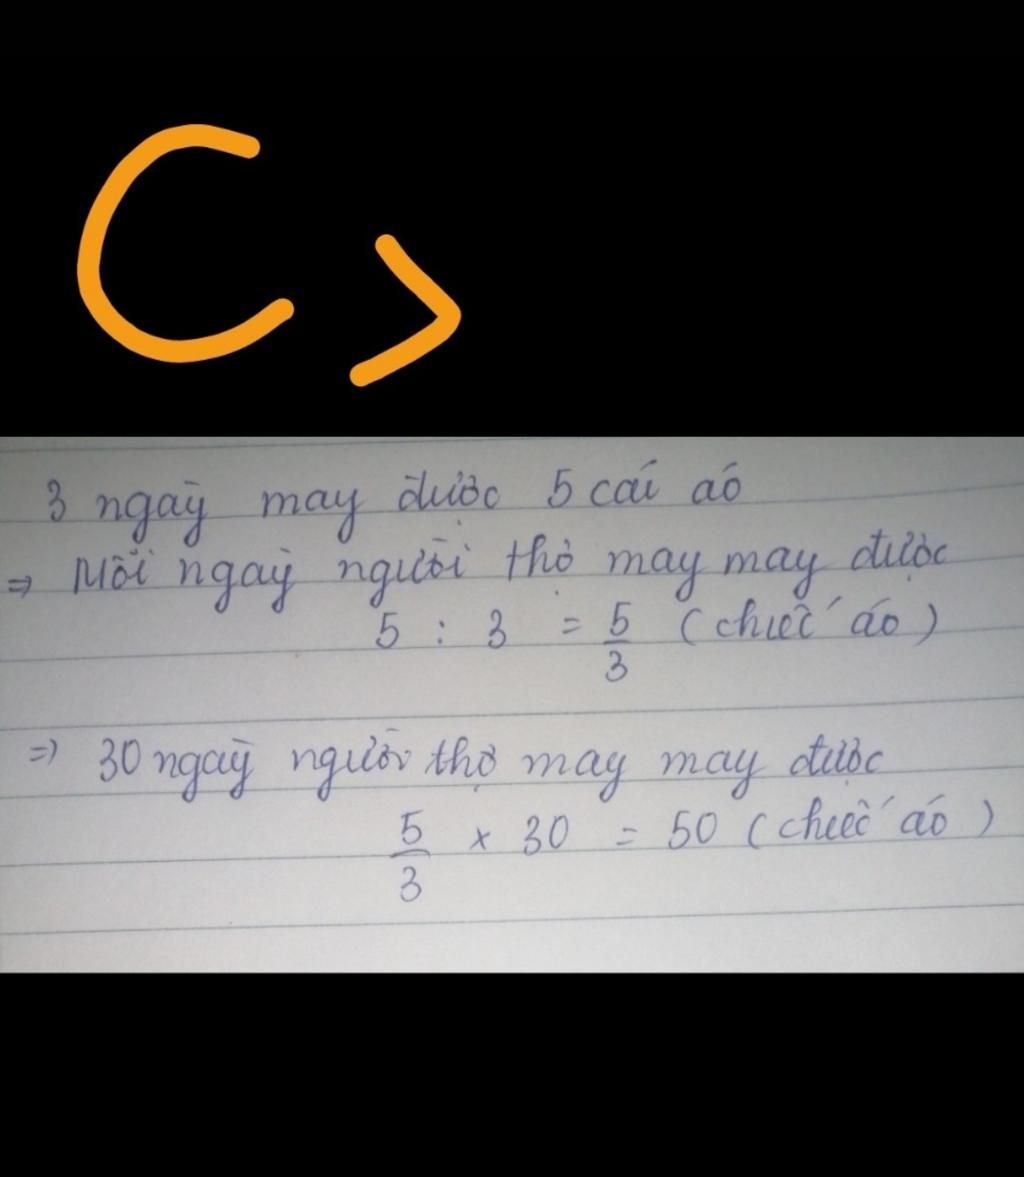 C>
3 ngày may được 5 cái áo
=> Mỗi ngày người thợ may may được
5 : 3 = 5/3 (chiếc áo)
=> 30 ngày người thợ may may được
5/3 x 30 = 50 (chiếc áo)